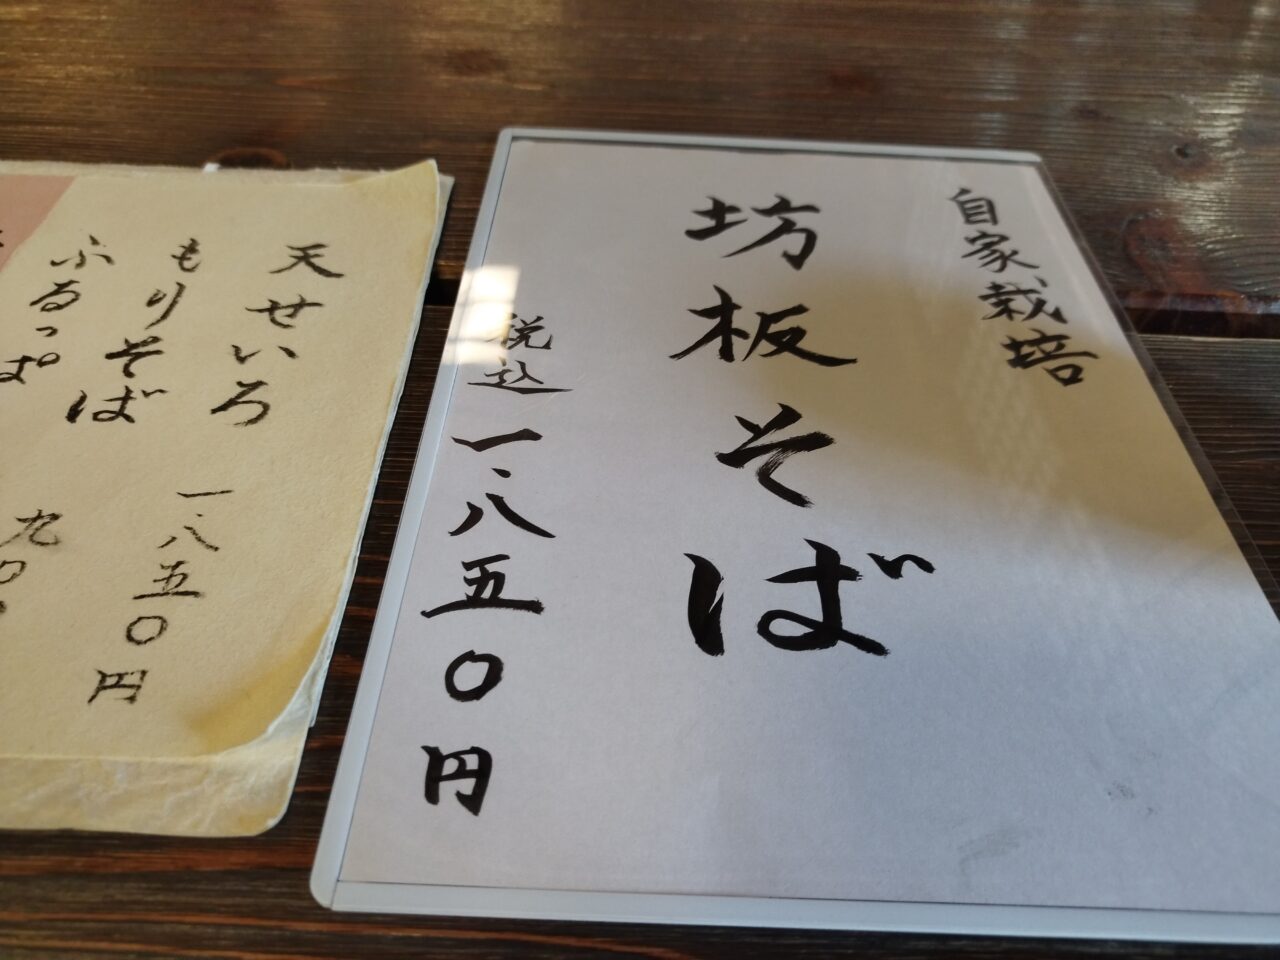 自家栽培
坊板そば
税込一、八五〇円
天せいろ
一、八五〇円
もりそば
ふるっぱ